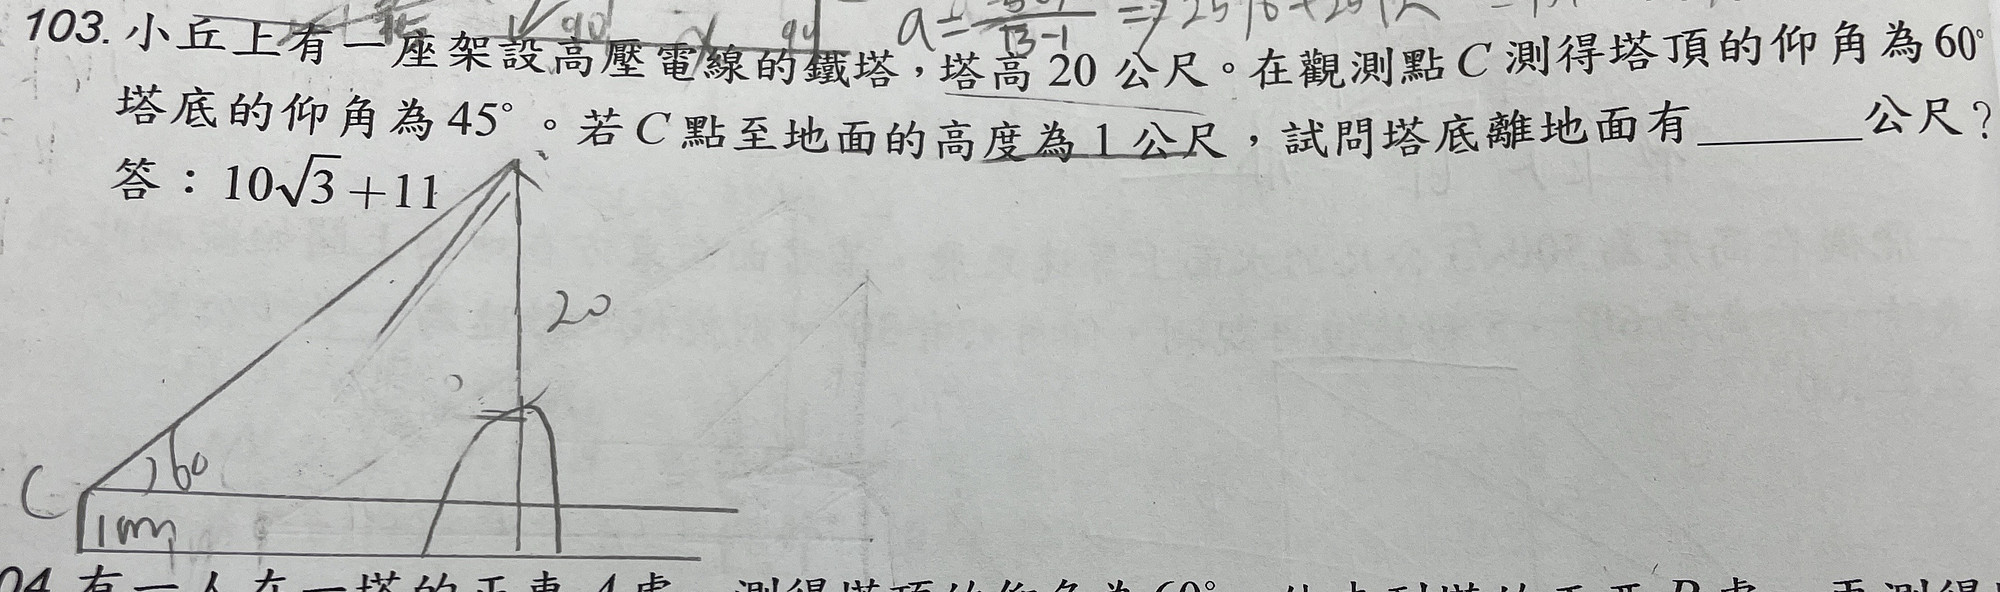 a = 50/√3-1 ⇒ 25√6+25√2
103. 小丘上有一座架設高壓電線的鐵塔，塔高 20 公尺。在觀測點 C 測得塔頂的仰角為 60°
塔底的仰角為 45°。若 C 點至地面的高度為 1 公尺，試問塔底離地面有______公尺？
答：10√3+11
20
60
C
1m
04. 有一人在一塔的正東 A 處，測得塔頂的仰角為 60°
再測得